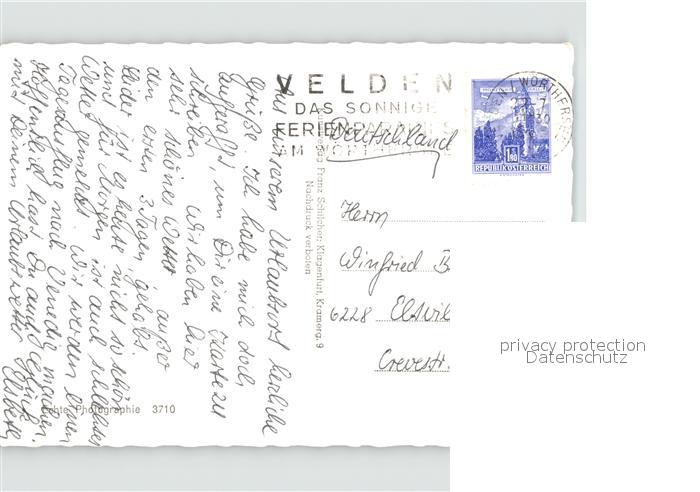 VELDEN
DAS SONNIGE
FERIENPARADIES
AM WÖRTHERSEE
Deutschland
1.80
REPUBLIK ÖSTERREICH
Herrn
Winfried B
6228 Eltvil
Crevestr.
Franz Schilcher, Klagenfurt, Kramerg. 9
Nachdruck verboten
Echte Photographie 3710
unserem Urlaubsort herzliche
Grüße. Ich habe mich doch
aufgerafft, um Dir eine Karte zu
schreiben. Wir haben hier
sehr schönes Wetter außer
den ersten 3 Tagen gehabt.
Leider ist es heute nicht so schön
und für Morgen ist auch schlechtes
Wetter gemeldet. Wir werden einen
Tagesausflug nach Venedig machen.
Hoffentlich hast Du auch Glück
mit Deinem Urlaubswetter.
privacy protection
Datenschutz